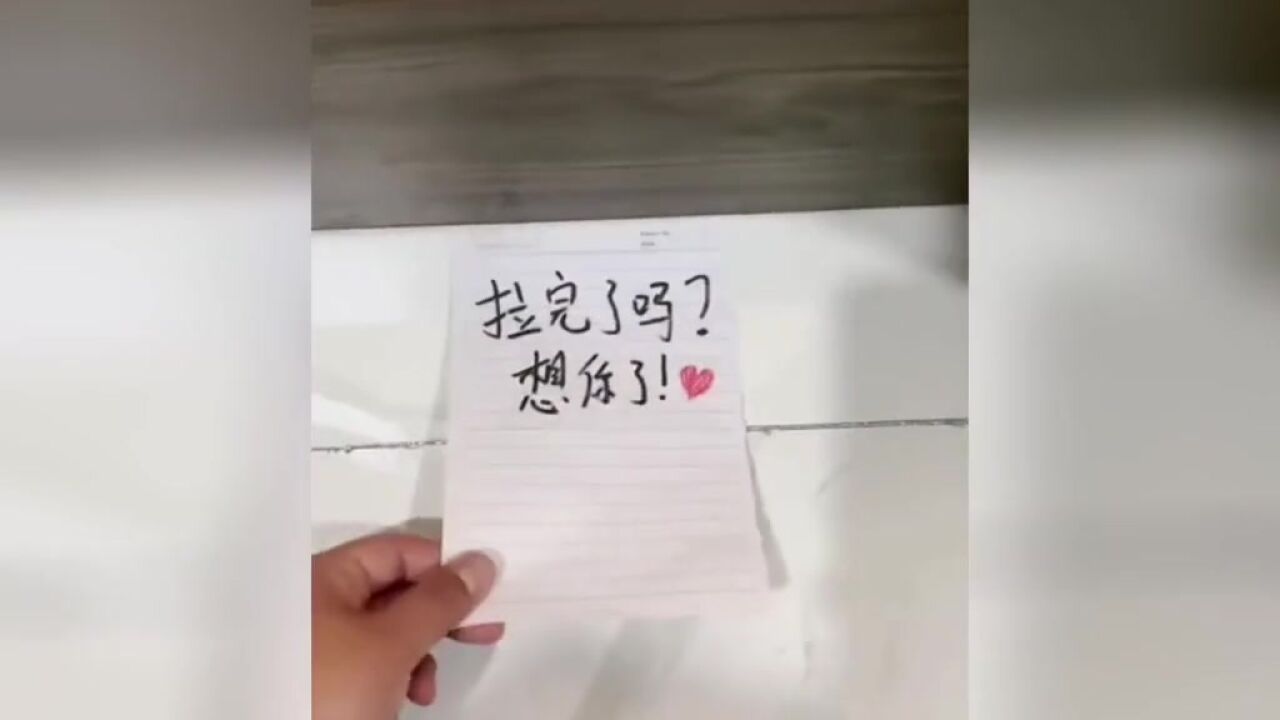 拉完了吗?
想你了!